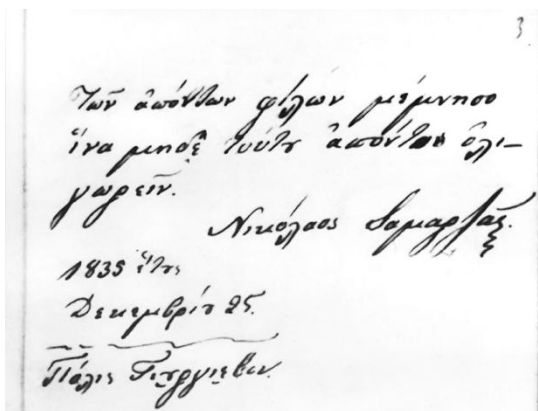 3
Τῶν ἀπόντων φίλων μέμνησο
ἵνα μηδὲ τούτου ἀπόντος ὀλι–
γωρεῖν.
Νικόλαος Σαμαρτζᾶς.
1835 ἔτος
Δεκεμβρίου 25.
Πόλις